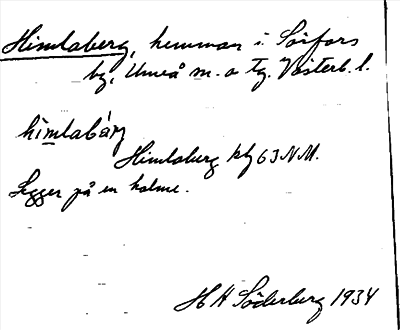 Himlaberg, hemman i Sörfors
by, Umeå m. o tg. Västerb. l.
himlabárj
Himlaberg kbg 63 NM.
Ligger på en holme.
H H Söderberg 1934